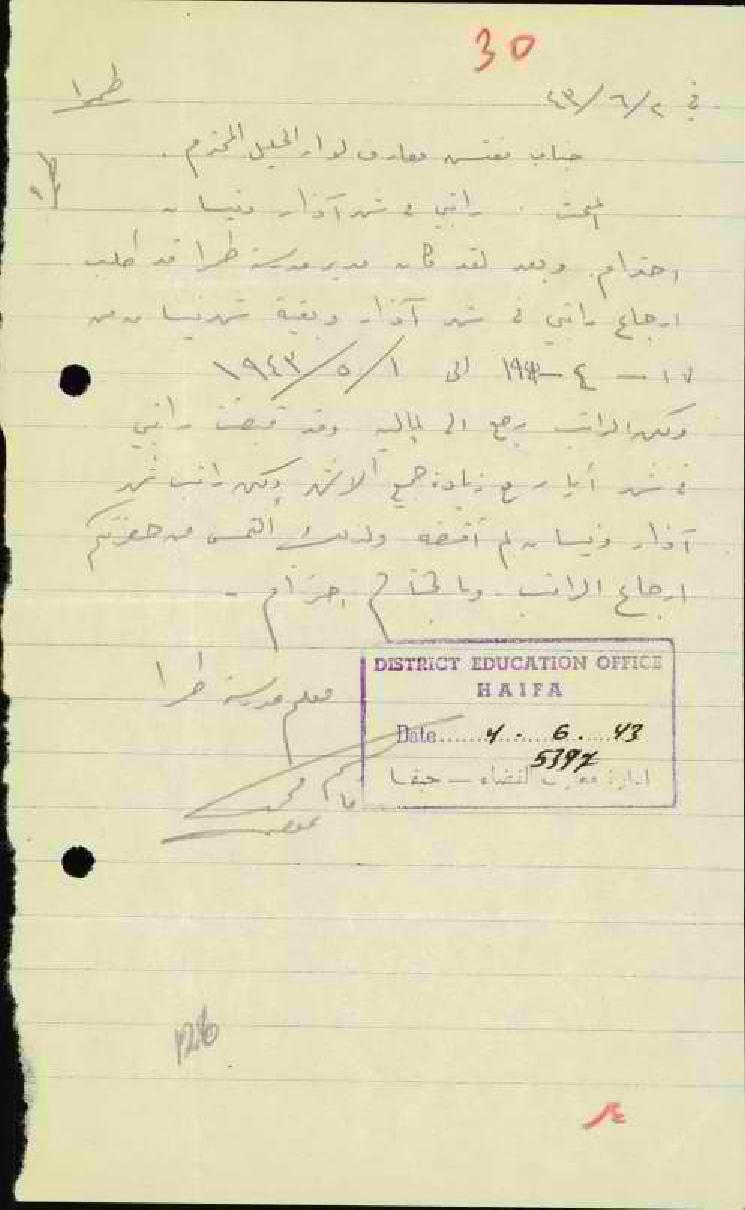 30
في ٢/٦/٤٣
طمرا
جناب مفتش معارف لواء الجليل المحترم .
المبحث : راتبي في شهر آذار ونيسان
احترام وبعد لقد كان مدير مدرسة طمرا قد طلب
ارجاع راتبي في شهر آذار وبقية شهر نيسان من
١٧ - ٤ - ١٩٤٣ الى ١/٥/١٩٤٣
ولكن الراتب رجع الى المالية وقد قبضت راتبي
في شهر أيار مع زيادة جميع الاشهر ولكن راتب شهر
آذار ونيسان لم أقبضه ولذلك التمس من حضرتكم
ارجاع الراتب . وبالختام احترام -
معلم مدرسة طمرا
DISTRICT EDUCATION OFFICE
HAIFA
Date 4 . 6 . 43
5397
ادارة معارف القضاء - حيفا
126